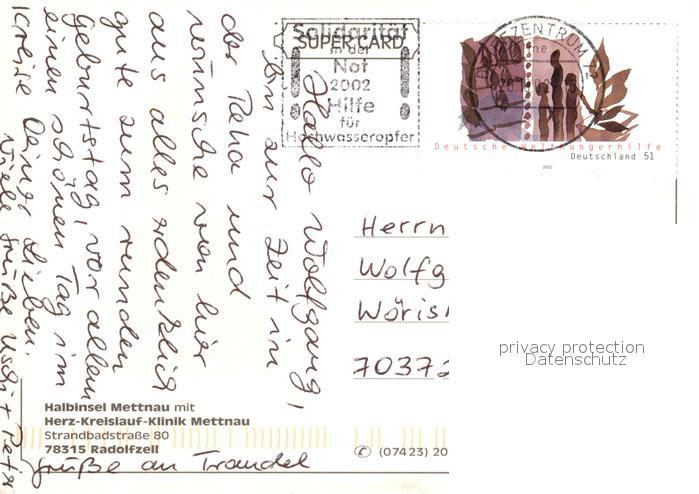 Solidarität
SUPER CARD
in der
Not
2002
Hilfe
für
Hochwasseropfer
ZENTRUM
Deutsche Welthungerhilfe
Deutschland 51
2002
Hallo Wolfgang,
bin zur Zeit in
der Reha und
wünsche von hier
aus alles erdenklich
gute zum runden
Geburtstag, vor allem
einen schönen Tag im
Kreise Deiner Lieben.
Viele Grüße Uschi + Peter
Grüße an Traudel
Herrn
Wolfg
Wöris
70372
privacy protection
Datenschutz
Halbinsel Mettnau mit
Herz-Kreislauf-Klinik Mettnau
Strandbadstraße 80
78315 Radolfzell
(07423) 20